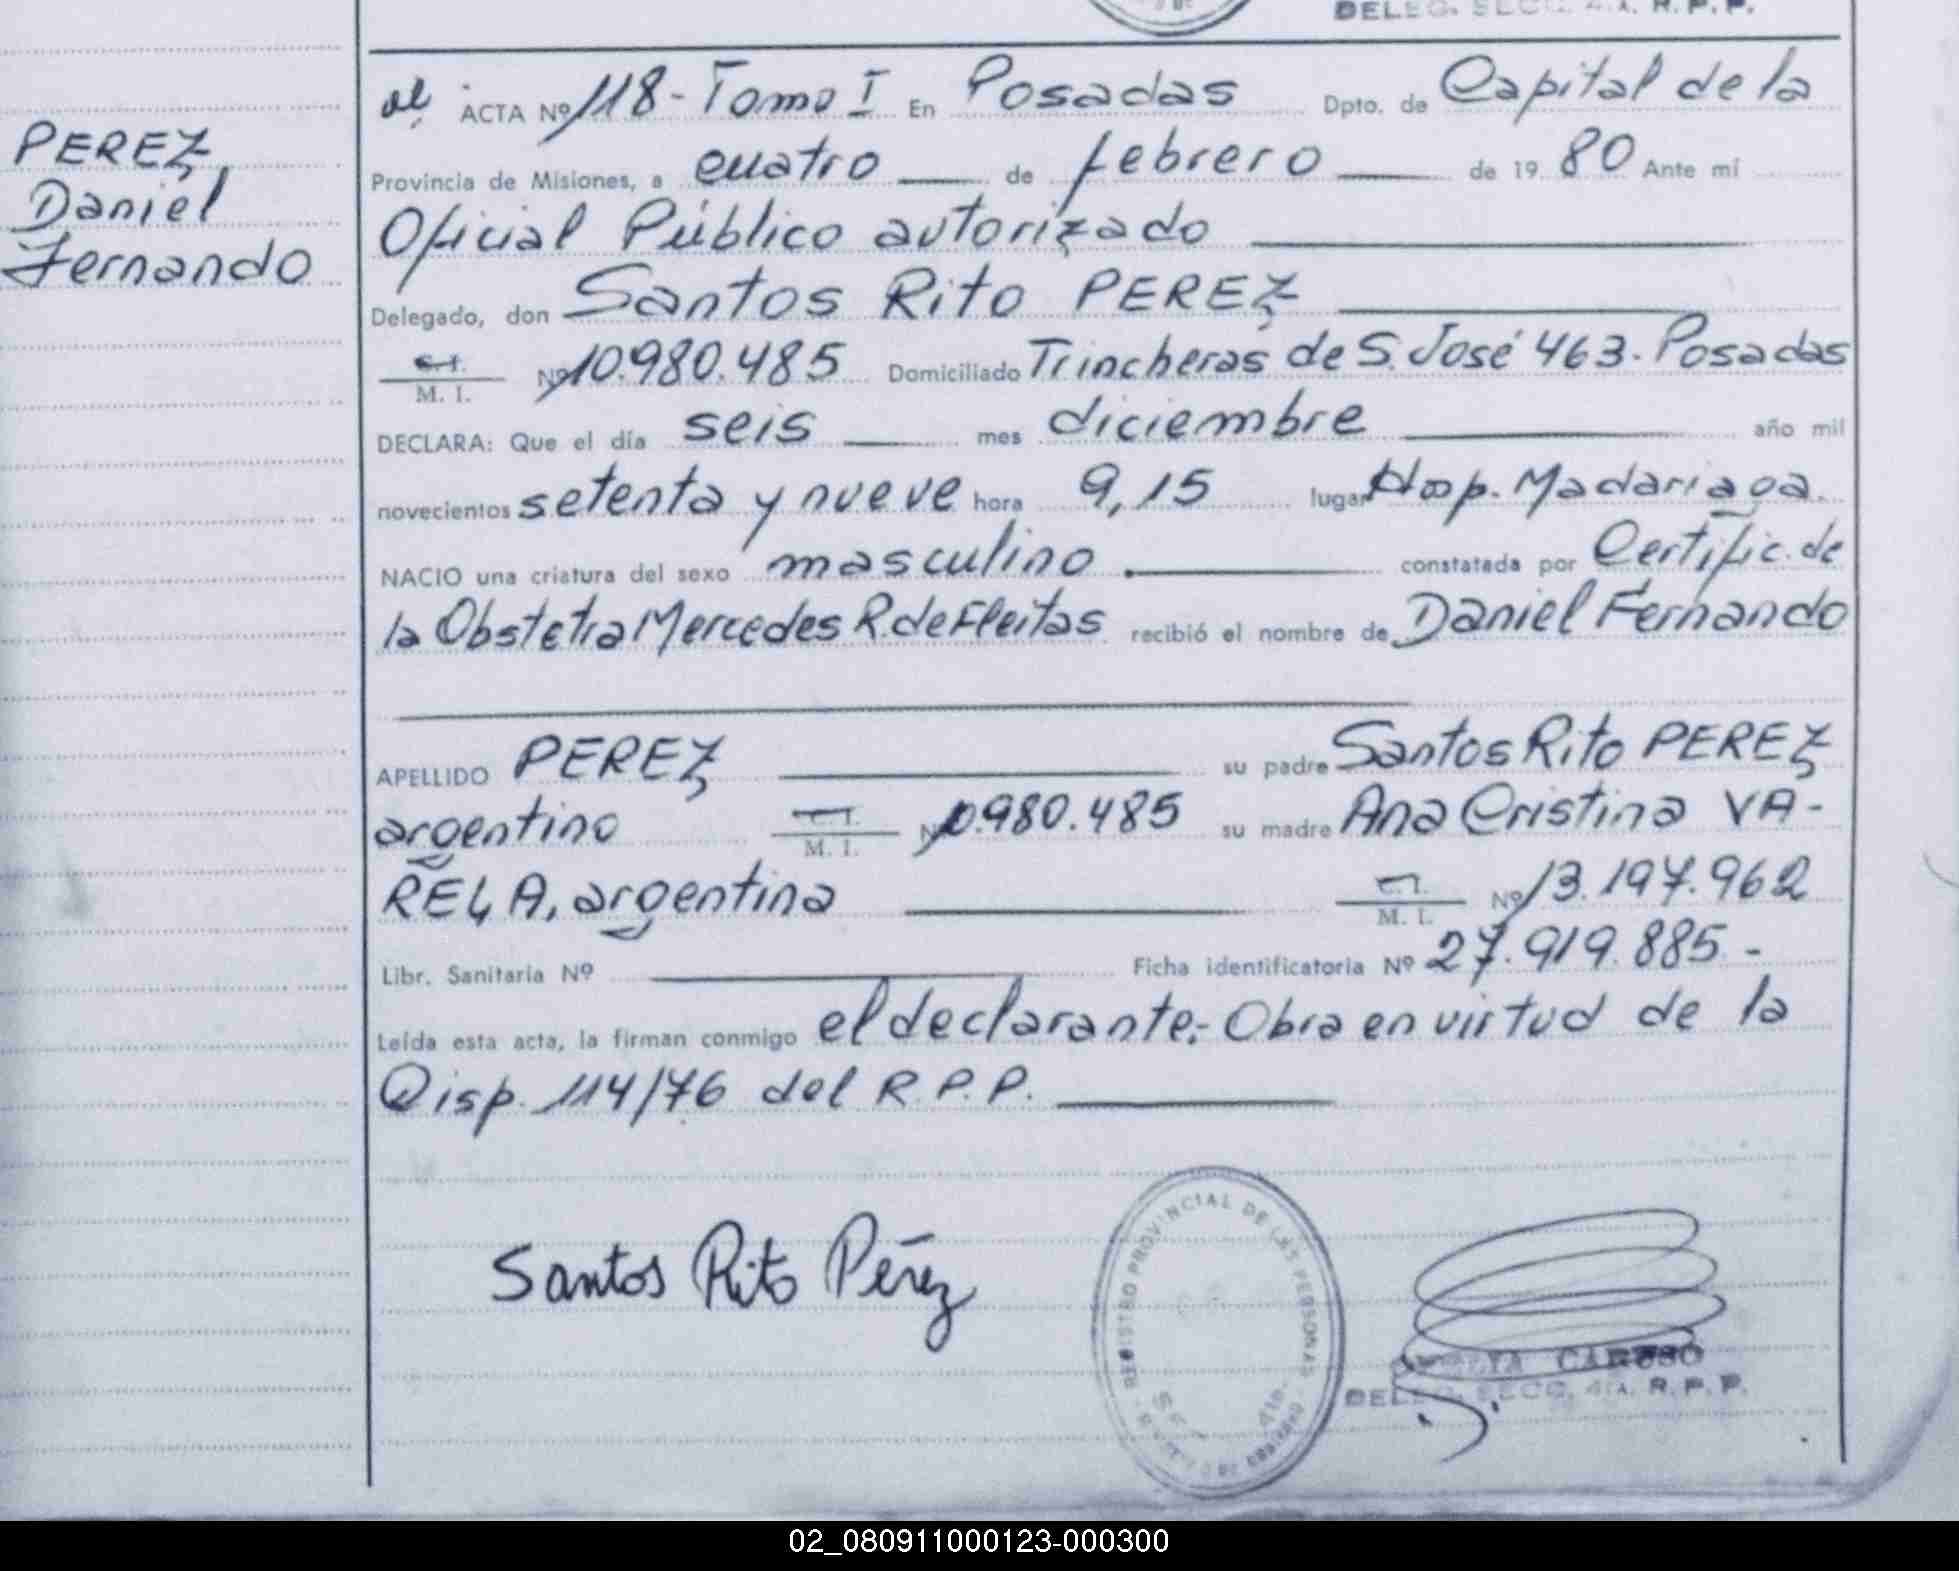 DELEG. SECC. 4A. R.P.P.
ACTA Nº 118 - Tomo I En Posadas Dpto. de Capital de la
PEREZ
Provincia de Misiones, a cuatro de febrero de 19 80 Ante mí
Daniel
Oficial Público autorizado
Fernando
Delegado, don Santos Rito PEREZ
C.I. M. I. Nº 10.980.485 Domiciliado Trincheras de S. José 463. Posadas
DECLARA: Que el día seis mes diciembre año mil
novecientos setenta y nueve hora 9,15 lugar Hosp. Madariaga.
NACIO una criatura del sexo masculino constatada por Certific. de
la Obstetra Mercedes R. de Fleitas recibió el nombre de Daniel Fernando
APELLIDO PEREZ su padre Santos Rito PEREZ
argentino C.I. M. I. Nº 10.980.485 su madre Ana Cristina VA-
RELA, argentina C.I. M. I. Nº 13.197.962
Libr. Sanitaria Nº Ficha identificatoria Nº 27.919.885.-
Leída esta acta, la firman conmigo el declarante.- Obra en virtud de la
Disp. 114/76 del R.P.P.
Santos Rito Pérez
REGISTRO PROVINCIAL DE LAS PERSONAS
CARUSO
DELEG. SECC. 4A. R.P.P.
02_080911000123-000300